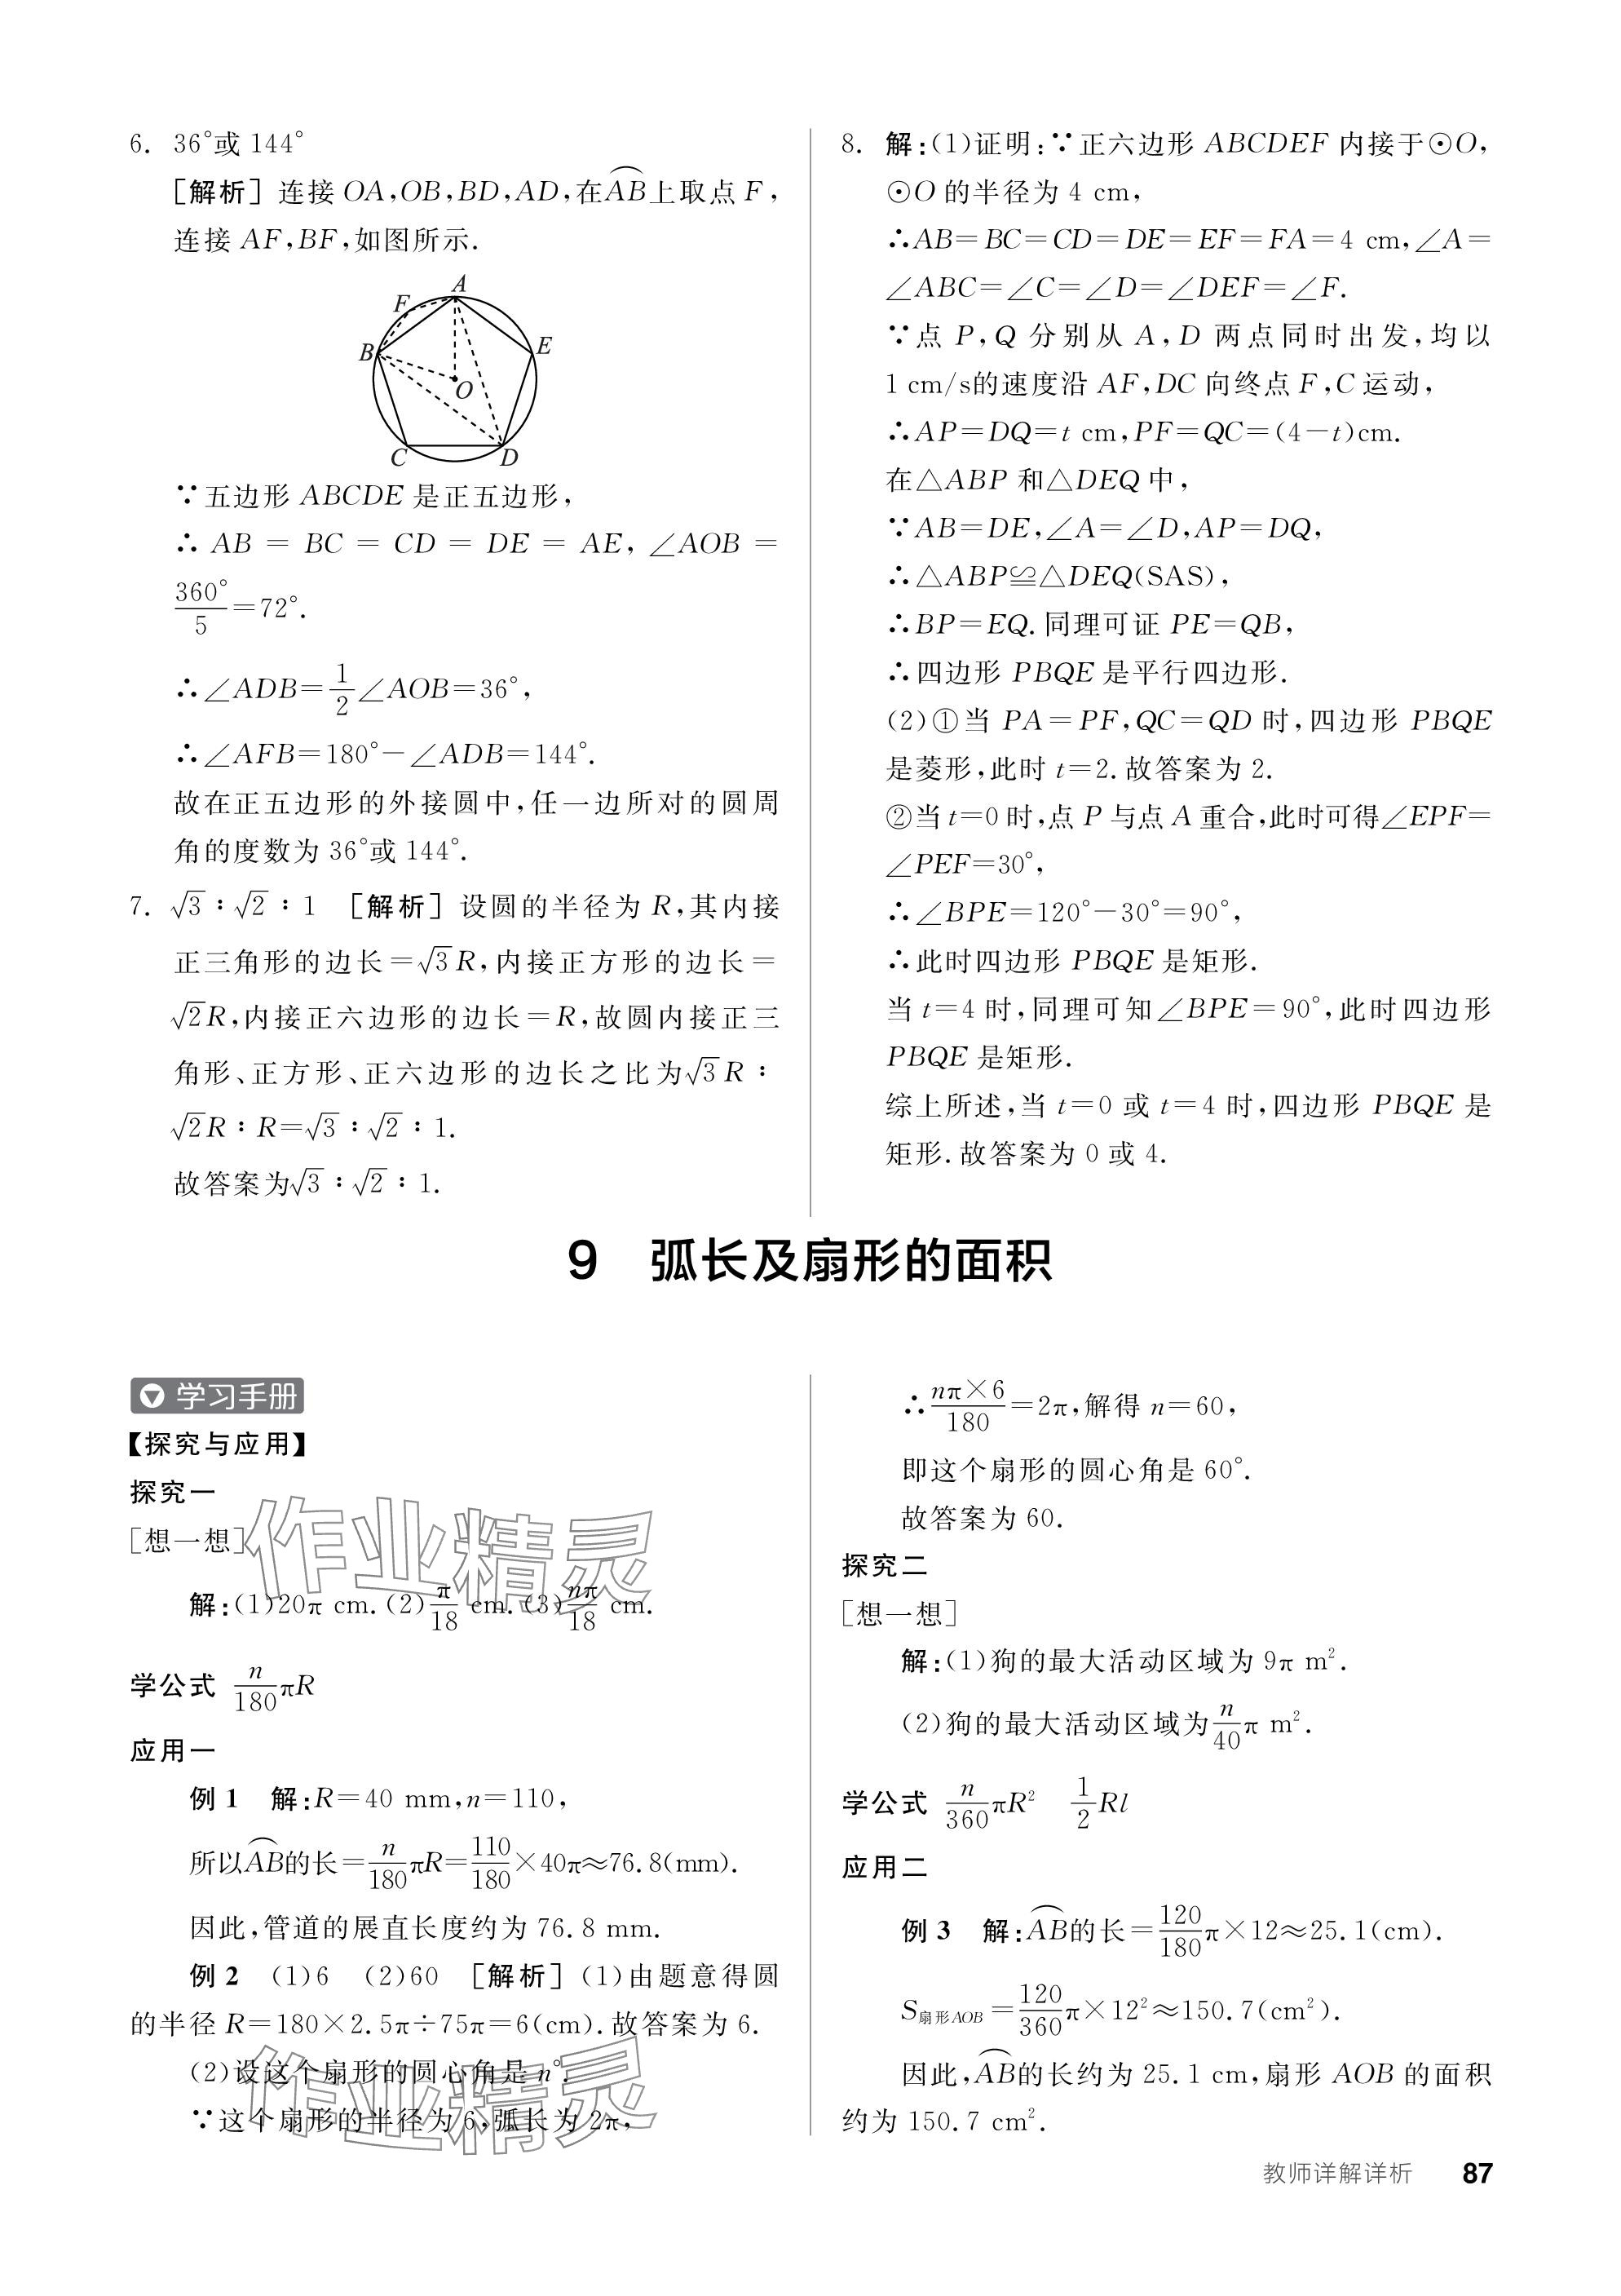 6. 36°或 144°
[解析] 连接 OA,OB,BD,AD,在A͡B上取点 F,
连接 AF,BF,如图所示.
A
F
B
E
O
C
D
∵五边形 ABCDE 是正五边形,
∴ AB = BC = CD = DE = AE, ∠AOB =
360°/5=72°.
∴∠ADB=1/2∠AOB=36°,
∴∠AFB=180°-∠ADB=144°.
故在正五边形的外接圆中,任一边所对的圆周
角的度数为 36°或 144°.
7. √3∶√2∶1 [解析] 设圆的半径为 R,其内接
正三角形的边长=√3R,内接正方形的边长=
√2R,内接正六边形的边长=R,故圆内接正三
角形、正方形、正六边形的边长之比为√3R∶
√2R∶R=√3∶√2∶1.
故答案为√3∶√2∶1.
8. 解:(1)证明:∵正六边形 ABCDEF 内接于⊙O,
⊙O 的半径为 4 cm,
∴AB=BC=CD=DE=EF=FA=4 cm,∠A=
∠ABC=∠C=∠D=∠DEF=∠F.
∵点 P,Q 分别从 A,D 两点同时出发,均以
1 cm/s的速度沿 AF,DC 向终点 F,C 运动,
∴AP=DQ=t cm,PF=QC=(4-t)cm.
在△ABP 和△DEQ 中,
∵AB=DE,∠A=∠D,AP=DQ,
∴△ABP≌△DEQ(SAS),
∴BP=EQ.同理可证 PE=QB,
∴四边形 PBQE 是平行四边形.
(2)①当 PA=PF,QC=QD 时,四边形 PBQE
是菱形,此时 t=2.故答案为 2.
②当 t=0 时,点 P 与点 A 重合,此时可得∠EPF=
∠PEF=30°,
∴∠BPE=120°-30°=90°,
∴此时四边形 PBQE 是矩形.
当 t=4 时,同理可知∠BPE=90°,此时四边形
PBQE 是矩形.
综上所述,当 t=0 或 t=4 时,四边形 PBQE 是
矩形.故答案为 0 或 4.
9 弧长及扇形的面积
学习手册
【探究与应用】
探究一
[想一想]
作业精灵
解:(1)20π cm.(2)π/18 cm.(3)nπ/18 cm.
学公式 n/180πR
应用一
例 1 解:R=40 mm,n=110,
所以A͡B的长=n/180πR=110/180×40π≈76.8(mm).
因此,管道的展直长度约为 76.8 mm.
例 2 (1)6 (2)60 [解析] (1)由题意得圆
的半径 R=180×2.5π÷75π=6(cm).故答案为 6.
(2)设这个扇形的圆心角是 n°.
作业精灵
∵这个扇形的半径为 6,弧长为 2π,
∴nπ×6/180=2π,解得 n=60,
即这个扇形的圆心角是 60°.
故答案为 60.
探究二
[想一想]
解:(1)狗的最大活动区域为 9π m².
(2)狗的最大活动区域为n/40π m².
学公式 n/360πR² 1/2Rl
应用二
例 3 解:A͡B的长=120/180π×12≈25.1(cm).
S扇形AOB=120/360π×12²≈150.7(cm²).
因此,A͡B的长约为 25.1 cm,扇形 AOB 的面积
约为 150.7 cm².
教师详解详析 87